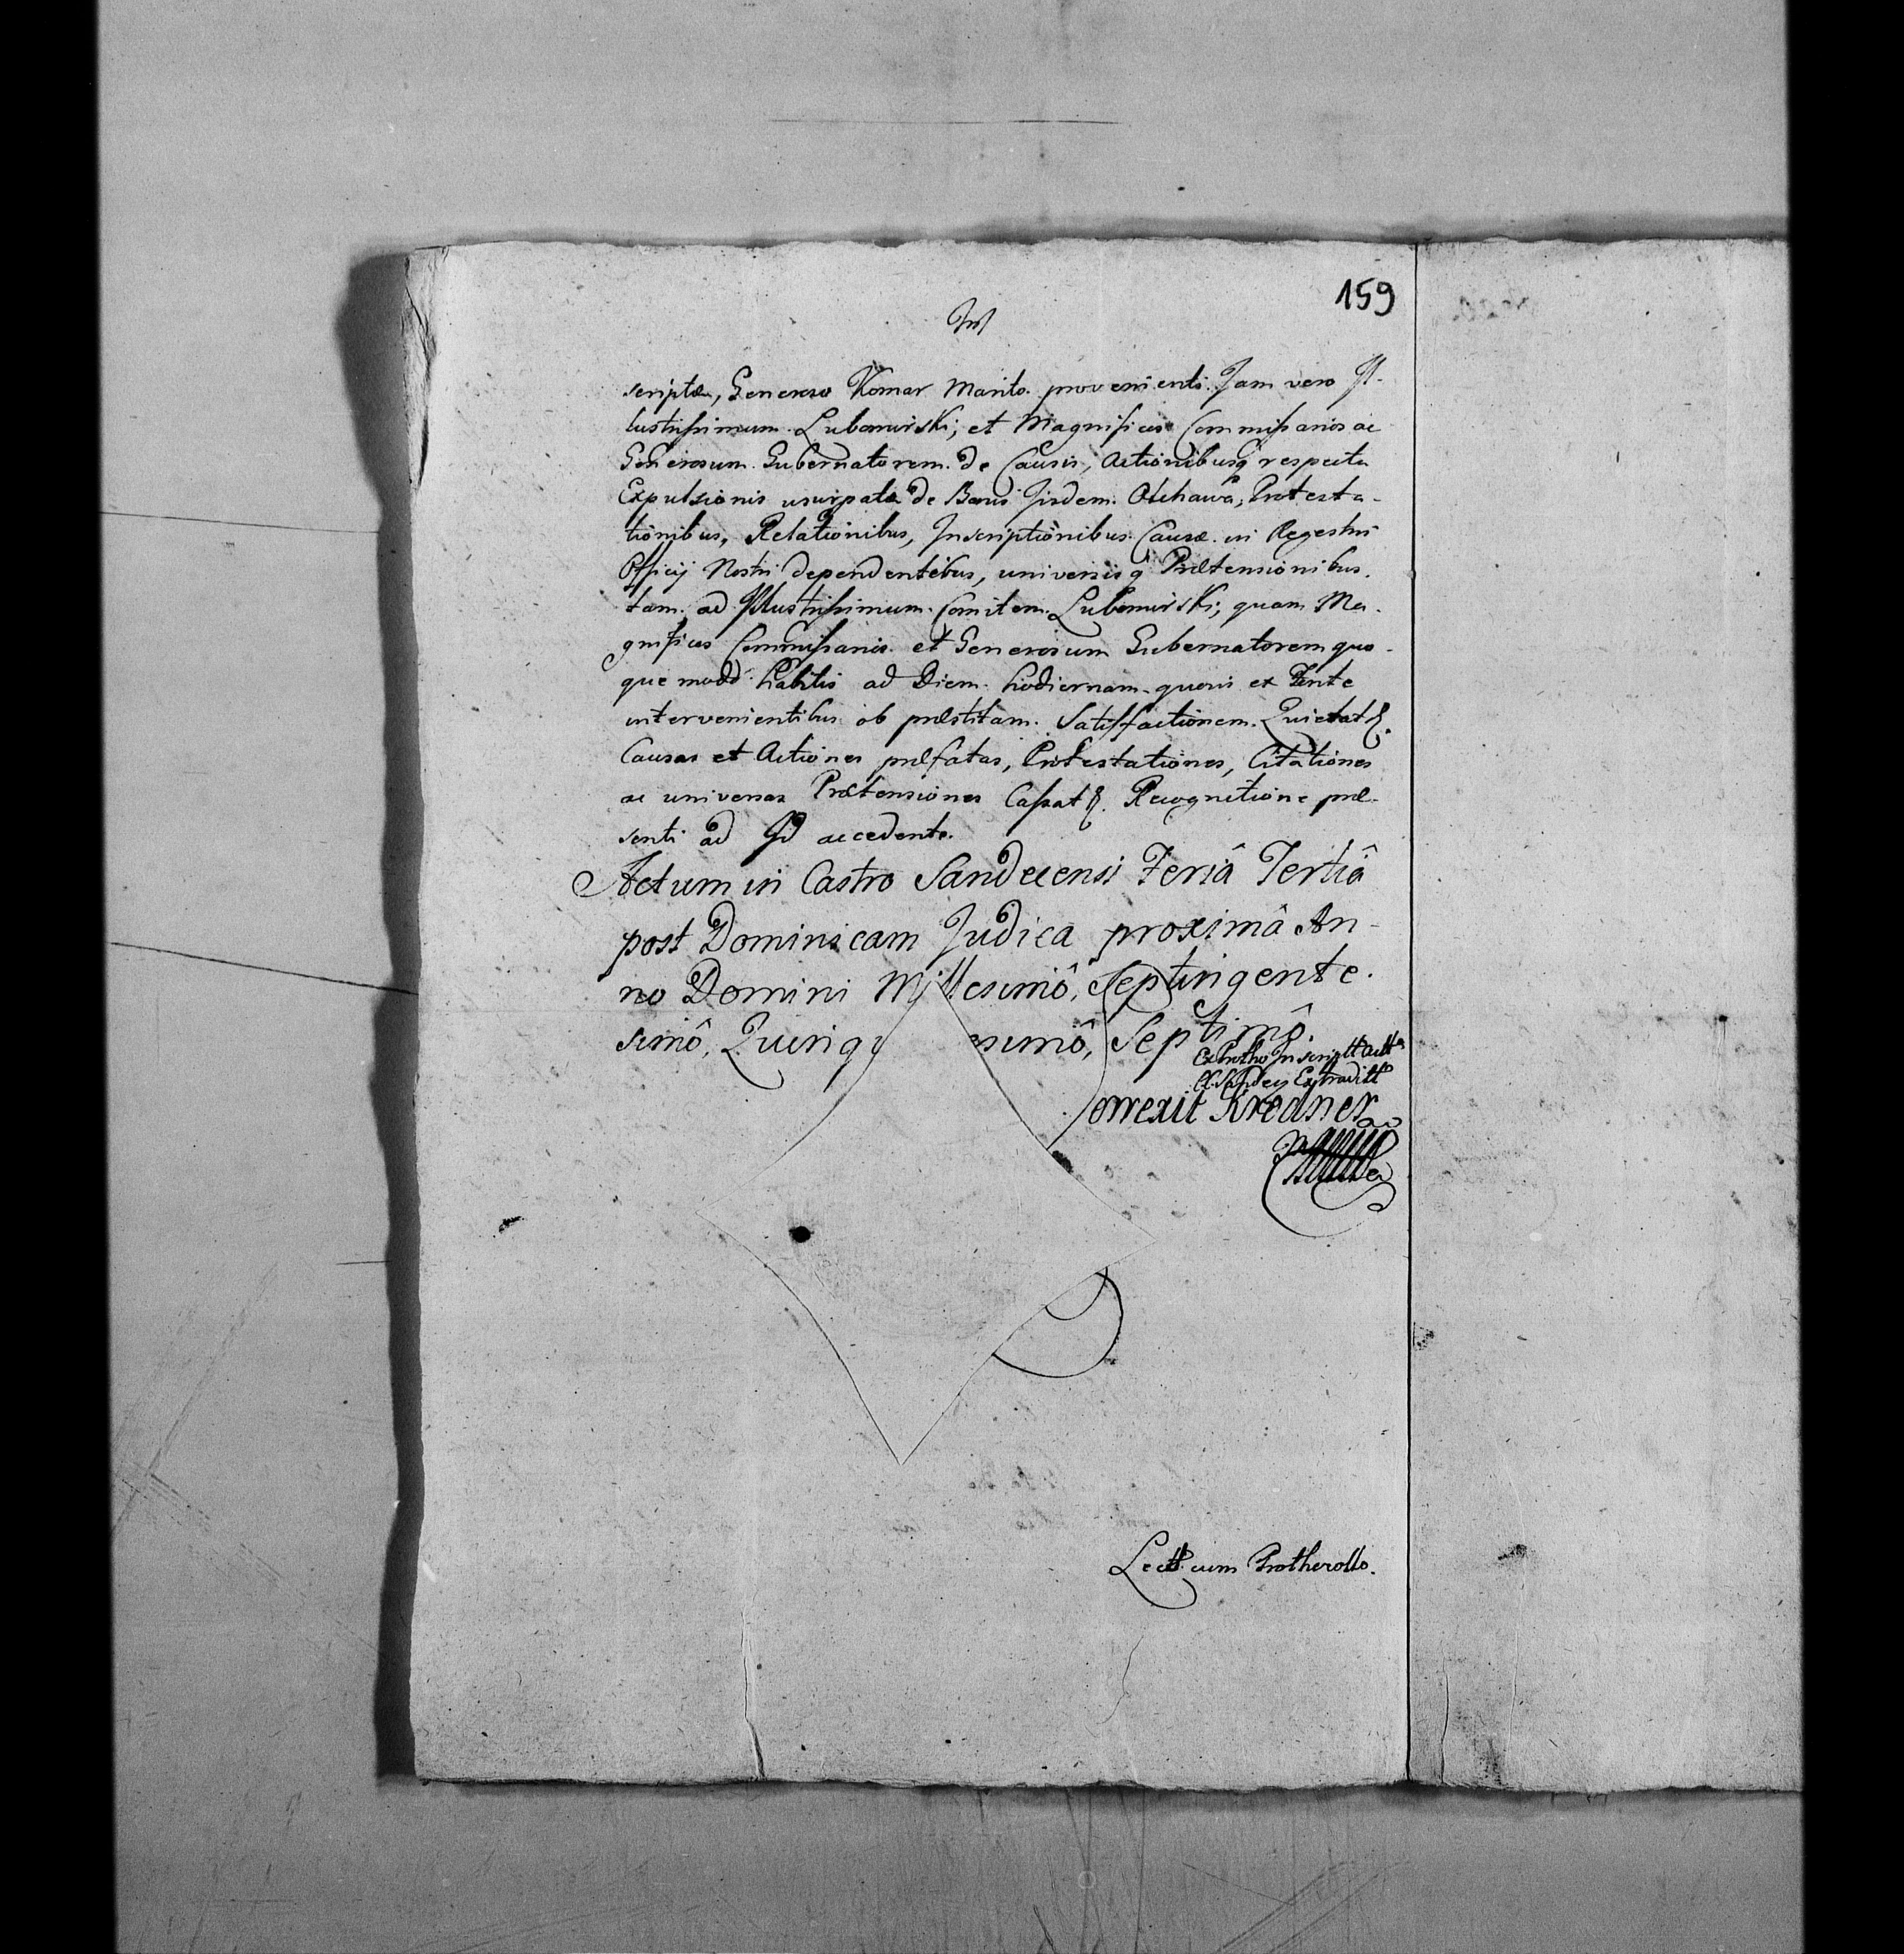 159
scriptæ, Generoso Komar Marito provenienti. Jam vero Il-
lustrissimum Lubomirski, et Magnificos Commissarios ac
Generosum Gubernatorem de Causis, Actionibusq respectu
Expulsionis usurpatæ de Bonis Jisdem Olchawa, Protesta-
tionibus, Relationibus, Inscriptionibus Causæ in Regestris
Officij Nostri dependentibus, universisq Prætensionibus
tam ad Illustrissimum Comitem Lubomirski, quam Ma-
gnificos Commissarios et Generosum Gubernatorem quo-
que modo habitis ad Diem hodiernam quovis ex
intervenientibus ob præstitam Satisfactionem Quietat
Causas et Actiones præfatas, Protestationes, Citationes
ac universas Prætensiones Cassat. Recognitione præ-
senti ad Id accedente.
Actum in Castro Sandecensi Feriâ Tertiâ
post Dominicam Judica proximâ An-
no Domini Millesimô, Septingente-
simô, Quinqu simô, Septimô.
Ex Protho Inscript
Extradit
Correxit Kredner
Lect cum Protherollo.